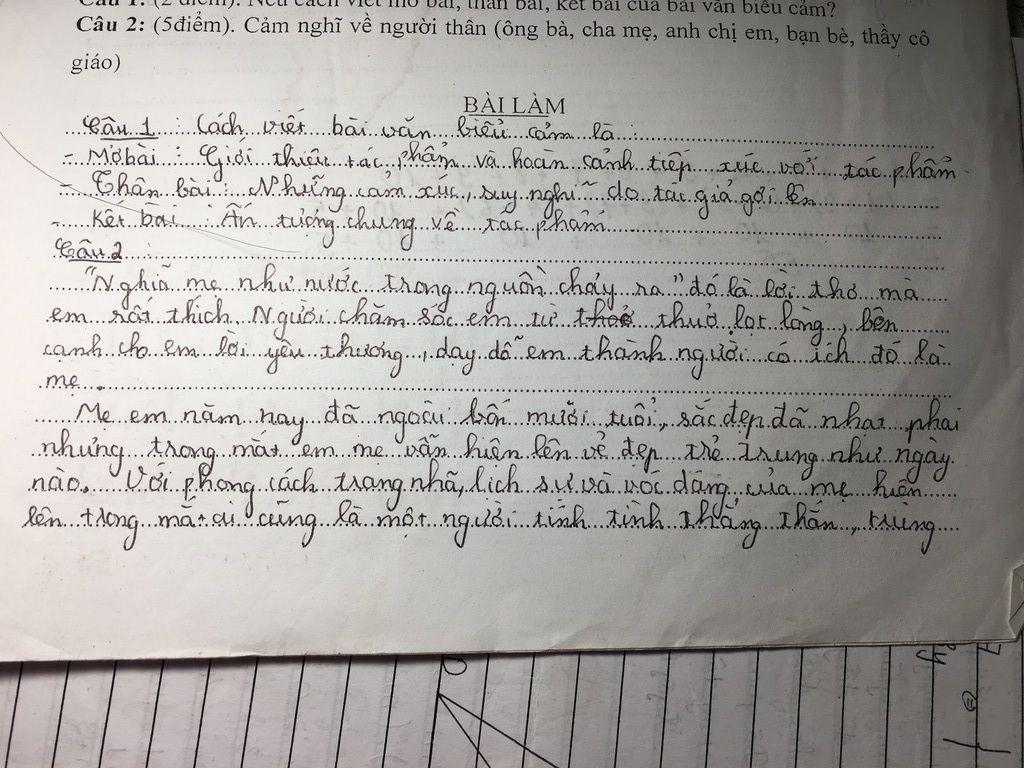 Câu 1: (2 điểm). Nêu cách viết mở bài, thân bài, kết bài của bài văn biểu cảm?
Câu 2: (5điểm). Cảm nghĩ về người thân (ông bà, cha mẹ, anh chị em, bạn bè, thầy cô
giáo)
BÀI LÀM
Câu 1 : Cách viết bài văn biểu cảm là :
- Mở bài : Giới thiệu tác phẩm và hoàn cảnh tiếp xúc với tác phẩm
- Thân bài : Những cảm xúc, suy nghĩ do tác giả gợi lên
- Kết bài : Ấn tượng chung về tác phẩm
Câu 2 :
"Nghĩa mẹ như nước trong nguồn chảy ra" đó là lời thơ mà
em rất thích. Người chăm sóc em từ thuở lọt lòng, bên
cạnh cho em lời yêu thương, dạy dỗ em thành người có ích đó là
mẹ.
Mẹ em năm nay đã ngoài bốn mươi tuổi, sắc đẹp đã nhạt phai
nhưng trong mắt em mẹ vẫn hiện lên vẻ đẹp trẻ trung như ngày
nào. Với phong cách trang nhã, lịch sự và vóc dáng của mẹ hiện
lên trong mắt ai cũng là một người tính tình thẳng thắn, trung